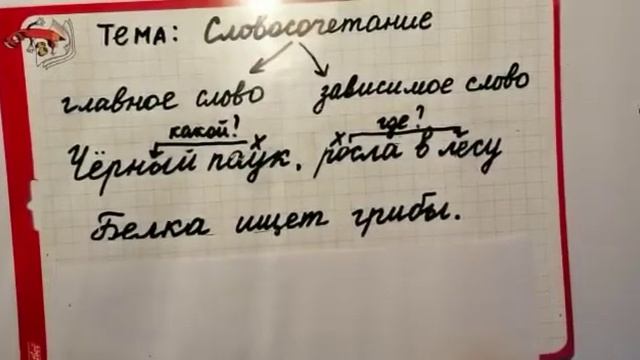 Тема: Словосочетание
главное слово зависимое слово
какой? где?
Чёрный паук, росла в лесу
Белка ищет грибы.